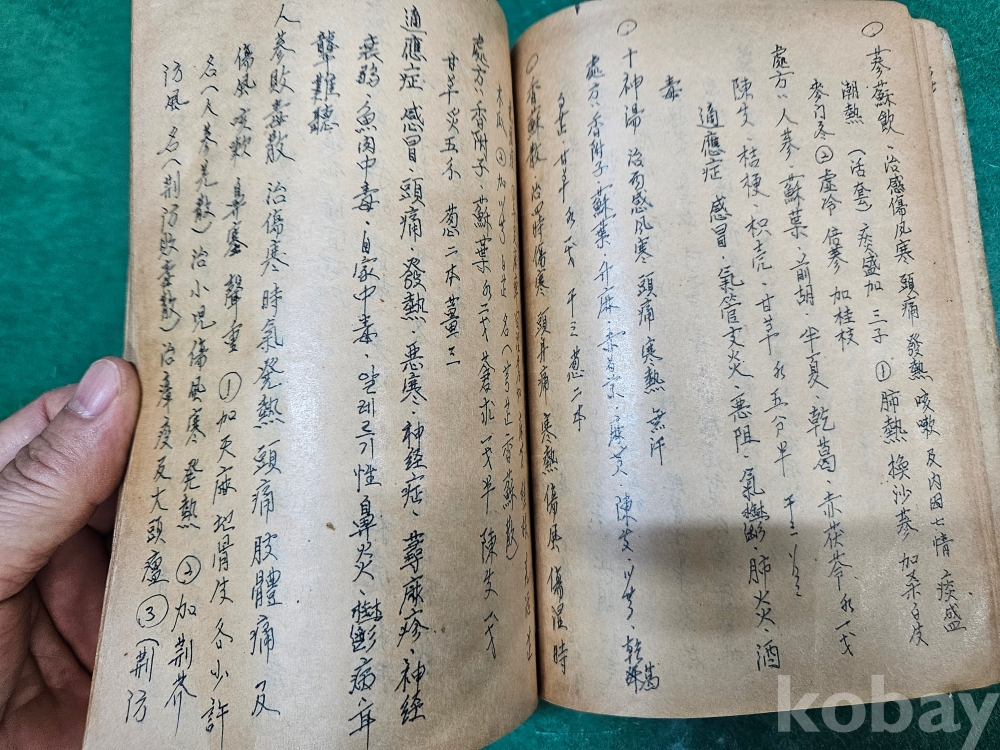 蔘蘇飮、治感傷风寒 頭痛 發熱 咳嗽 及内因七情 痰盛
潮熱 (活套) 痰盛加 三子 ① 肺熱 換沙蔘 加桑白皮
麥门冬 ② 虛冷 倍蔘 加桂枝
處方、人蔘、蘇葉、前胡、半夏、乾葛、赤茯苓 各一戈
陳皮、桔梗、枳壳、甘草 各五分半 干三
適應症 感冒、氣管支炎、悪阻、氣鬱、肺炎、酒
毒
十神湯 治两感风寒 頭痛 寒熱 無汗
處方、香附子、蘇葉、升麻、麻黃、陳皮、乾葛
甘草 各一戈 干三 葱二本
香蘇散、治四時傷寒 頭身痛 寒熱 傷風 傷濕 時
處方、香附子、蘇葉 各二戈 蒼朮 一戈半 陳皮 一戈
甘草 炙五分 葱二本 薑三
適應症 感冒、頭痛、發熱、悪寒、神経症、蕁麻疹、神経
衰弱、魚肉中毒、自家中毒、알레르기性鼻炎、鬱病、耳
聾難聽
人蔘敗毒散 治傷寒 時氣 発熱 頭痛 肢體痛 及
傷風 咳嗽 鼻塞 聲重 ① 加天麻 地骨皮 各少許
名(人蔘羌散) 治小児傷風寒 発熱 ② 加荆芥
防風 名(荆防敗毒散) 治 及大頭瘟 ③ (荆防
kobay